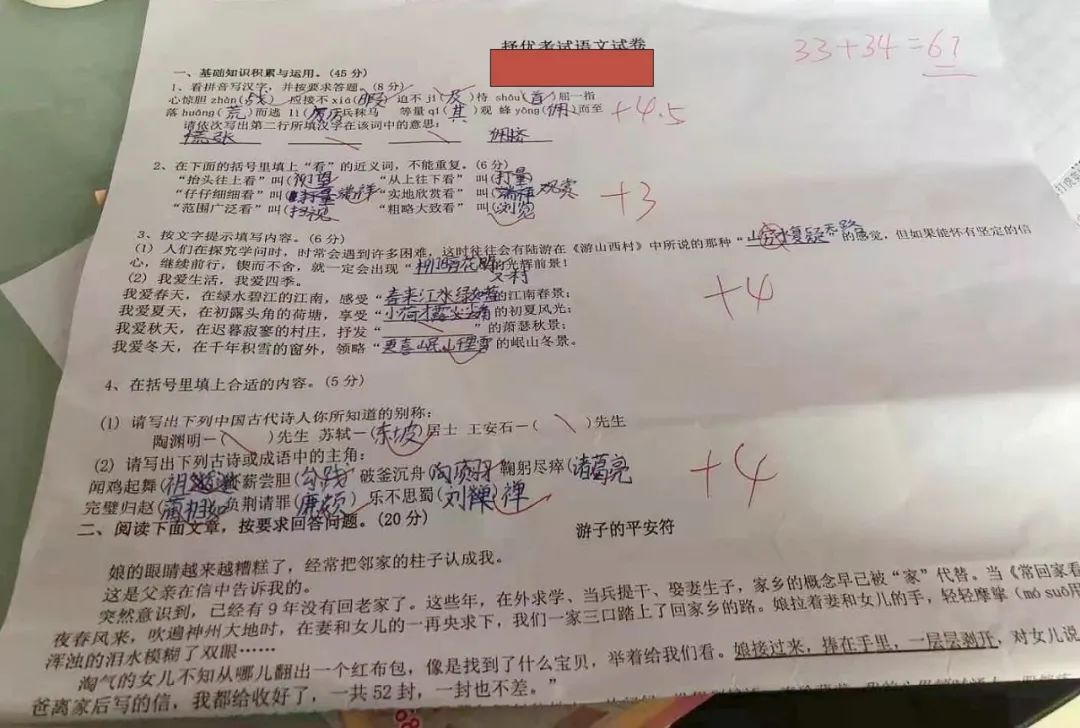 择优考试语文试卷
33+34=67
一、基础知识积累与运用。(45 分)
1、看拼音写汉字，并按要求答题。(8 分)
心惊胆 zhàn(战) 应接不 xiá(暇) 迫不 jí(及)待 shǒu(首)屈一指
落 huāng(荒)而逃 lì(厉)兵秣马 等量 qí(其)观 蜂 yōng(佣)而至
+4.5
请依次写出第二行所填汉字在该词中的意思：
慌张 佣挤
2、在下面的括号里填上“看”的近义词，不能重复。(6 分)
“抬头往上看”叫(仰望) “从上往下看” 叫(打量)
“仔仔细细看”叫(端详 “实地欣赏看” 叫( 观赏
“范围广泛看”叫(扫视) “粗略大致看” 叫(浏览)
+3
3、按文字提示填写内容。(6 分)
(1) 人们在探究学问时，时常会遇到许多困难，这时往往会有陆游在《游山西村》中所说的那种“山穷水复疑无路的感觉，但如果能怀有坚定的信
心，继续前行，锲而不舍，就一定会出现“柳暗花明又村的光辉前景！
(2) 我爱生活，我爱四季。
我爱春天，在绿水碧江的江南，感受“春来江水绿如蓝的江南春景；
我爱夏天，在初露头角的荷塘，享受“小荷才露尖尖角的初夏风光；
我爱秋天，在迟暮寂寥的村庄，抒发“ ”的萧瑟秋景；
我爱冬天，在千年积雪的窗外，领略“更喜岷山千里雪的岷山冬景。
+4
4、在括号里填上合适的内容。(5 分)
(1) 请写出下列中国古代诗人你所知道的别称：
陶渊明—( )先生 苏轼—(东坡)居士 王安石—( )先生
(2) 请写出下列古诗或成语中的主角：
闻鸡起舞(祖逖 薪尝胆(勾践) 破釜沉舟(项羽 鞠躬尽瘁(诸葛亮
完璧归赵(蔺相如 负荆请罪(廉颇) 乐不思蜀(刘禅
+4
二、阅读下面文章，按要求回答问题。(20 分)
游子的平安符
娘的眼睛越来越糟糕了，经常把邻家的柱子认成我。
这是父亲在信中告诉我的。
突然意识到，已经有 9 年没有回老家了。这些年，在外求学、当兵提干、娶妻生子，家乡的概念早已被“家”代替。当《常回家看
夜春风来，吹遍神州大地时，在妻和女儿的一再央求下，我们一家三口踏上了回家乡的路。娘拉着妻和女儿的手，轻轻摩挲(mó suō用
浑浊的泪水模糊了双眼……
淘气的女儿不知从哪儿翻出一个红布包，像是找到了什么宝贝，举着给我们看。娘接过来，捧在手里，一层层剥开，对女儿说
爸离家后写的信，我都给收好了，一共 52 封，一封也不差。”